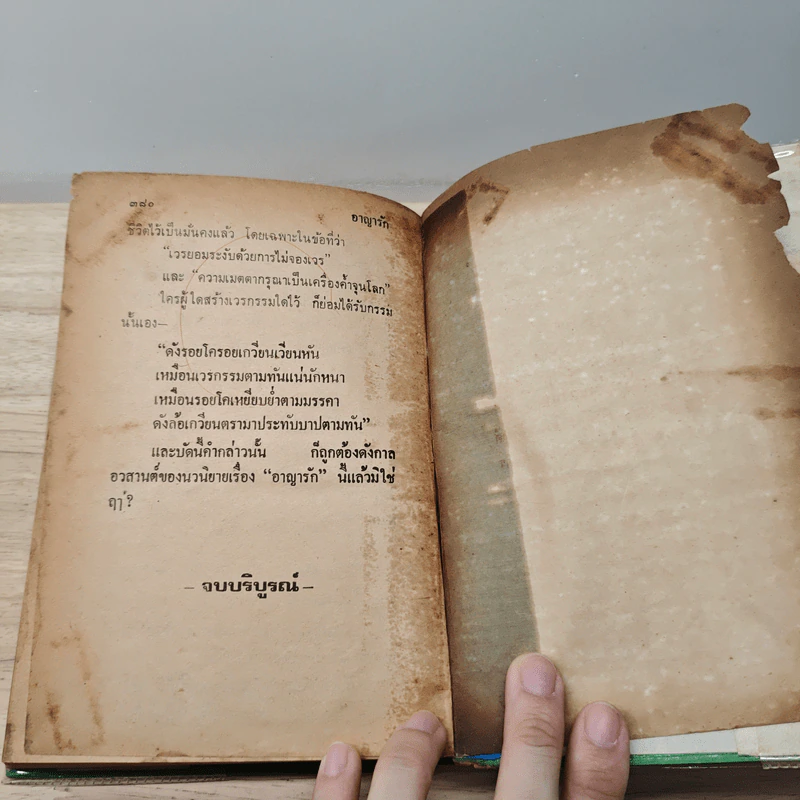 ๓๘๐
อาญารัก
ชีวิตไว้เป็นมั่นคงแล้ว โดยเฉพาะในข้อที่ว่า
“เวรยอมระงับด้วยการไม่จองเวร”
และ “ความเมตตากรุณาเป็นเครื่องค้ำจุนโลก”
ใครผู้ใดสร้างเวรกรรมใดไว้ ก็ย่อมได้รับกรรม
นั้นเอง—
“ดังรอยโครอยเกวียนเวียนหัน
เหมือนเวรกรรมตามทันแน่นักหนา
เหมือนรอยโคเหยียบย่ำตามมรรคา
ดังล้อเกวียนตรามาประทับบาปตามทัน”
และบัดนี้คำกล่าวนั้น ก็ถูกต้องดังกาล
อวสานต์ของนวนิยายเรื่อง “อาญารัก” นี้แล้วมิใช่
ฤๅ?
– จบบริบูรณ์ –